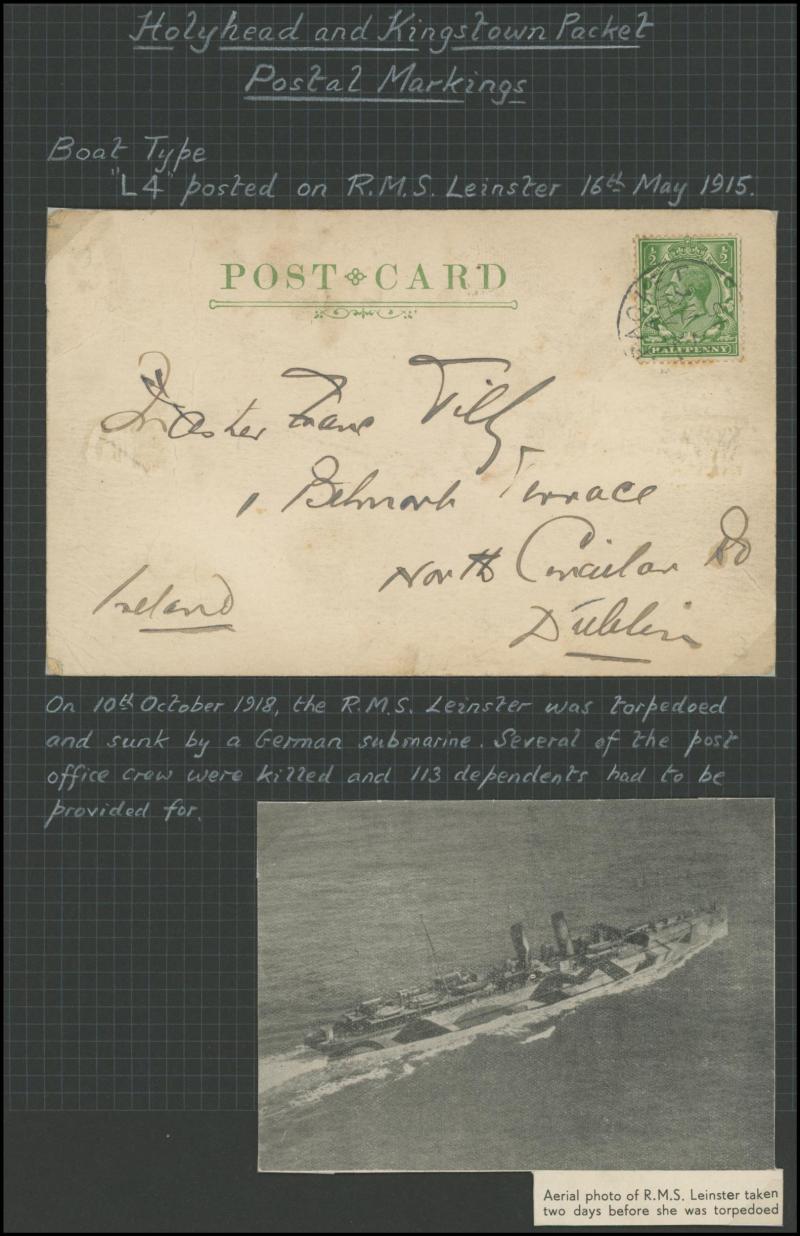 Holyhead and Kingstown Packet
Postal Markings
Boat Type
"L4" posted on R.M.S. Leinster 16th May 1915.
POST CARD
½ ½
HALFPENNY
Master Tilly
1 Belmont Terrace
North Circular Rd
Dublin
Ireland
On 10th October 1918, the R.M.S. Leinster was torpedoed
and sunk by a German submarine. Several of the post
office crew were killed and 113 dependents had to be
provided for.
Aerial photo of R.M.S. Leinster taken
two days before she was torpedoed